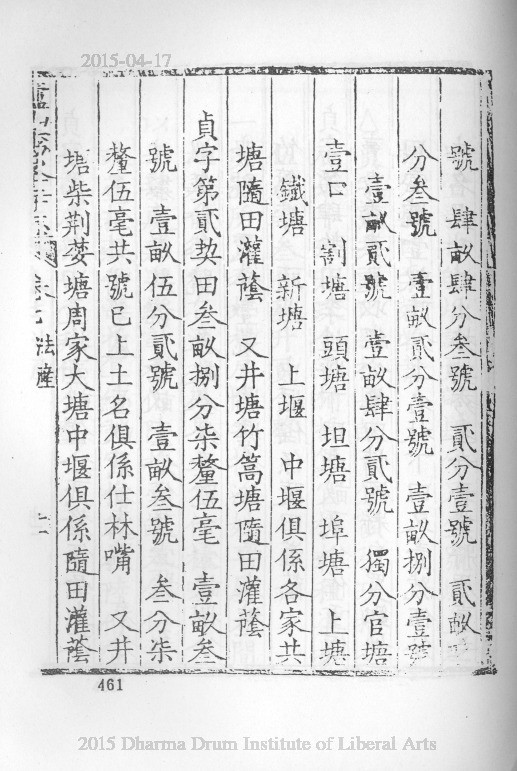 2015-04-17
號 肆畝肆分叁號 貳分壹號 貳畝
分叁號 壹畝貳分壹號 壹畝捌分壹號
壹畝貳號 壹畝肆分貳號 獨分官塘
壹口 割塘 頭塘 坦塘 埠塘 上塘
鐵塘 新塘 上堰 中堰俱係各家共
塘隨田灌蔭 又井塘竹篙塘隨田灌蔭
貞字第貳契田叁畝捌分柒釐伍毫 壹畝叁
號 壹畝伍分貳號 壹畝叁號 叁分柒
釐伍毫共號已上土名俱係仕林嘴 又井
塘柴荆塘周家大塘中堰俱係隨田灌蔭
卷七 法產
461
2015 Dharma Drum Institute of Liberal Arts